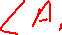 ∠A,